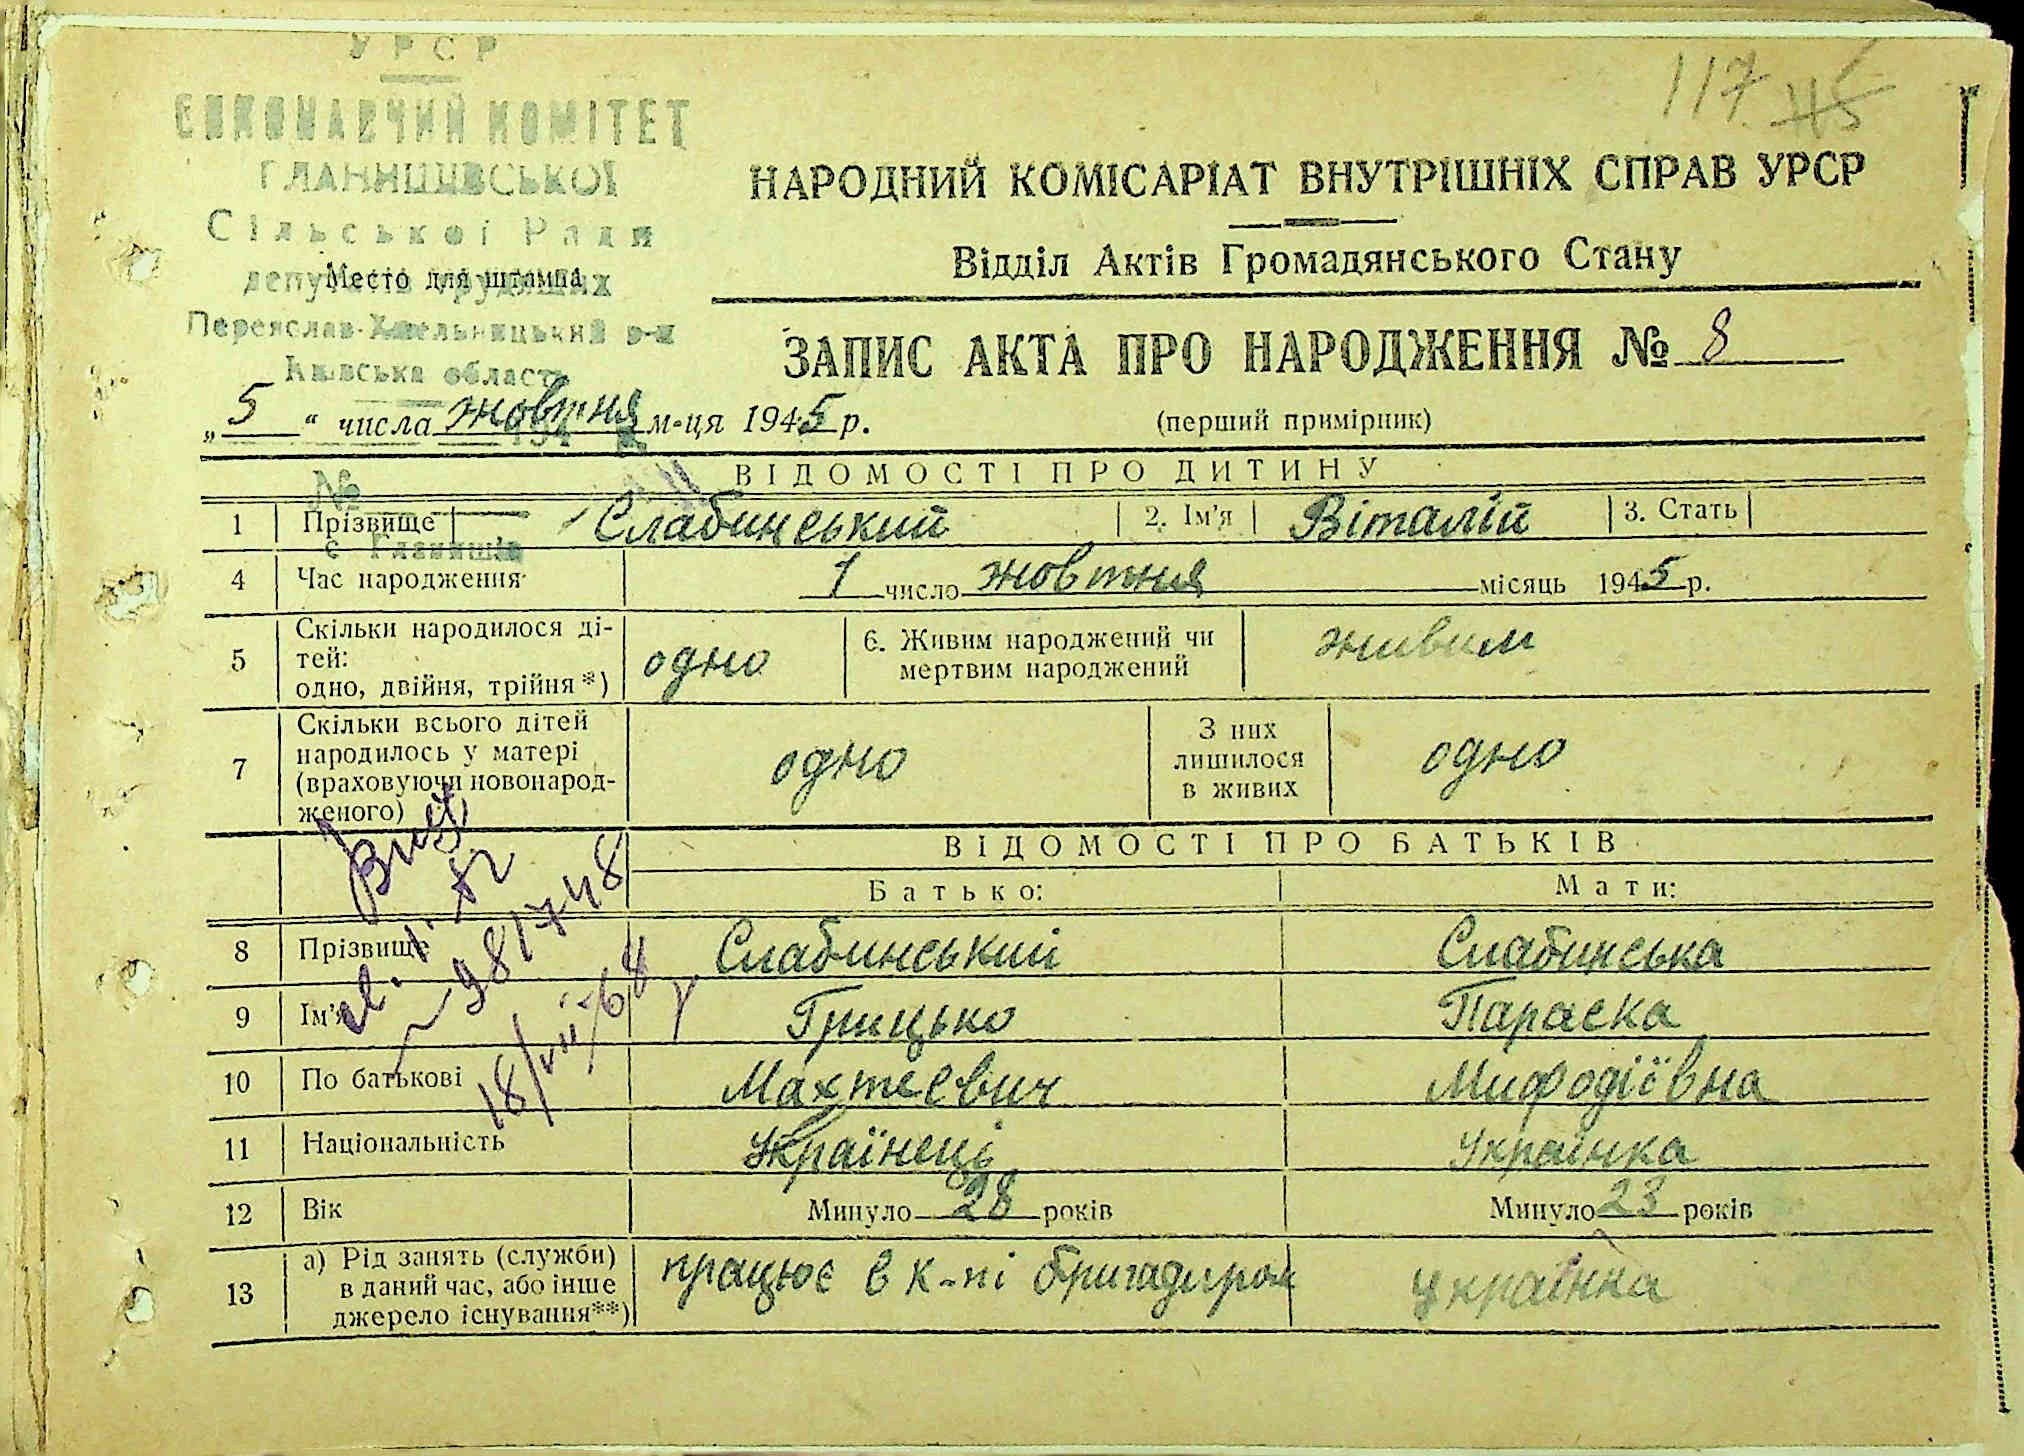 УРСР
ВИКОНАВЧИЙ КОМІТЕТ
ГЛАНИШІВСЬКОЇ
Сільської Ради
депутатів трудящих
Место для штампа
Переяслав-Хмельницький р-н
Київська область
№
с Гланишів
117 115
НАРОДНИЙ КОМІСАРІАТ ВНУТРІШНІХ СПРАВ УРСР
Відділ Актів Громадянського Стану
ЗАПИС АКТА ПРО НАРОДЖЕННЯ № 8
„5“ числа жовтня м-ця 1945 р. (перший примірник)
ВІДОМОСТІ ПРО ДИТИНУ
1 Прізвище Слабинський 2. Ім'я Віталій 3. Стать
4 Час народження 1 число жовтня місяць 1945 р.
5 Скільки народилося ді-
тей:
одно, двійня, трійня*) одно 6. Живим народжений чи
мертвим народжений живим
7 Скільки всього дітей
народилось у матері
(враховуючи новонарод-
женого) одно З них
лишилося
в живих одно
ВІДОМОСТІ ПРО БАТЬКІВ
Батько: Мати:
8 Прізвище Слабинський Слабинська
9 Ім'я Грицько Параска
10 По батькові Махтеєвич Мифодіївна
11 Національність Українець Українка
12 Вік Минуло 28 років Минуло 23 років
13 а) Рід занять (служби)
в даний час, або інше
джерело існування**) працює в к-пі бригадиром українка
18/VIII-68